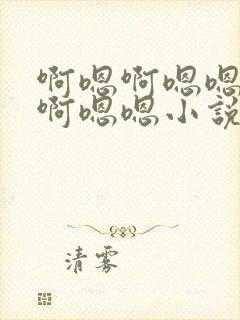 啊嗯啊嗯嗯
啊嗯嗯小説
清雾